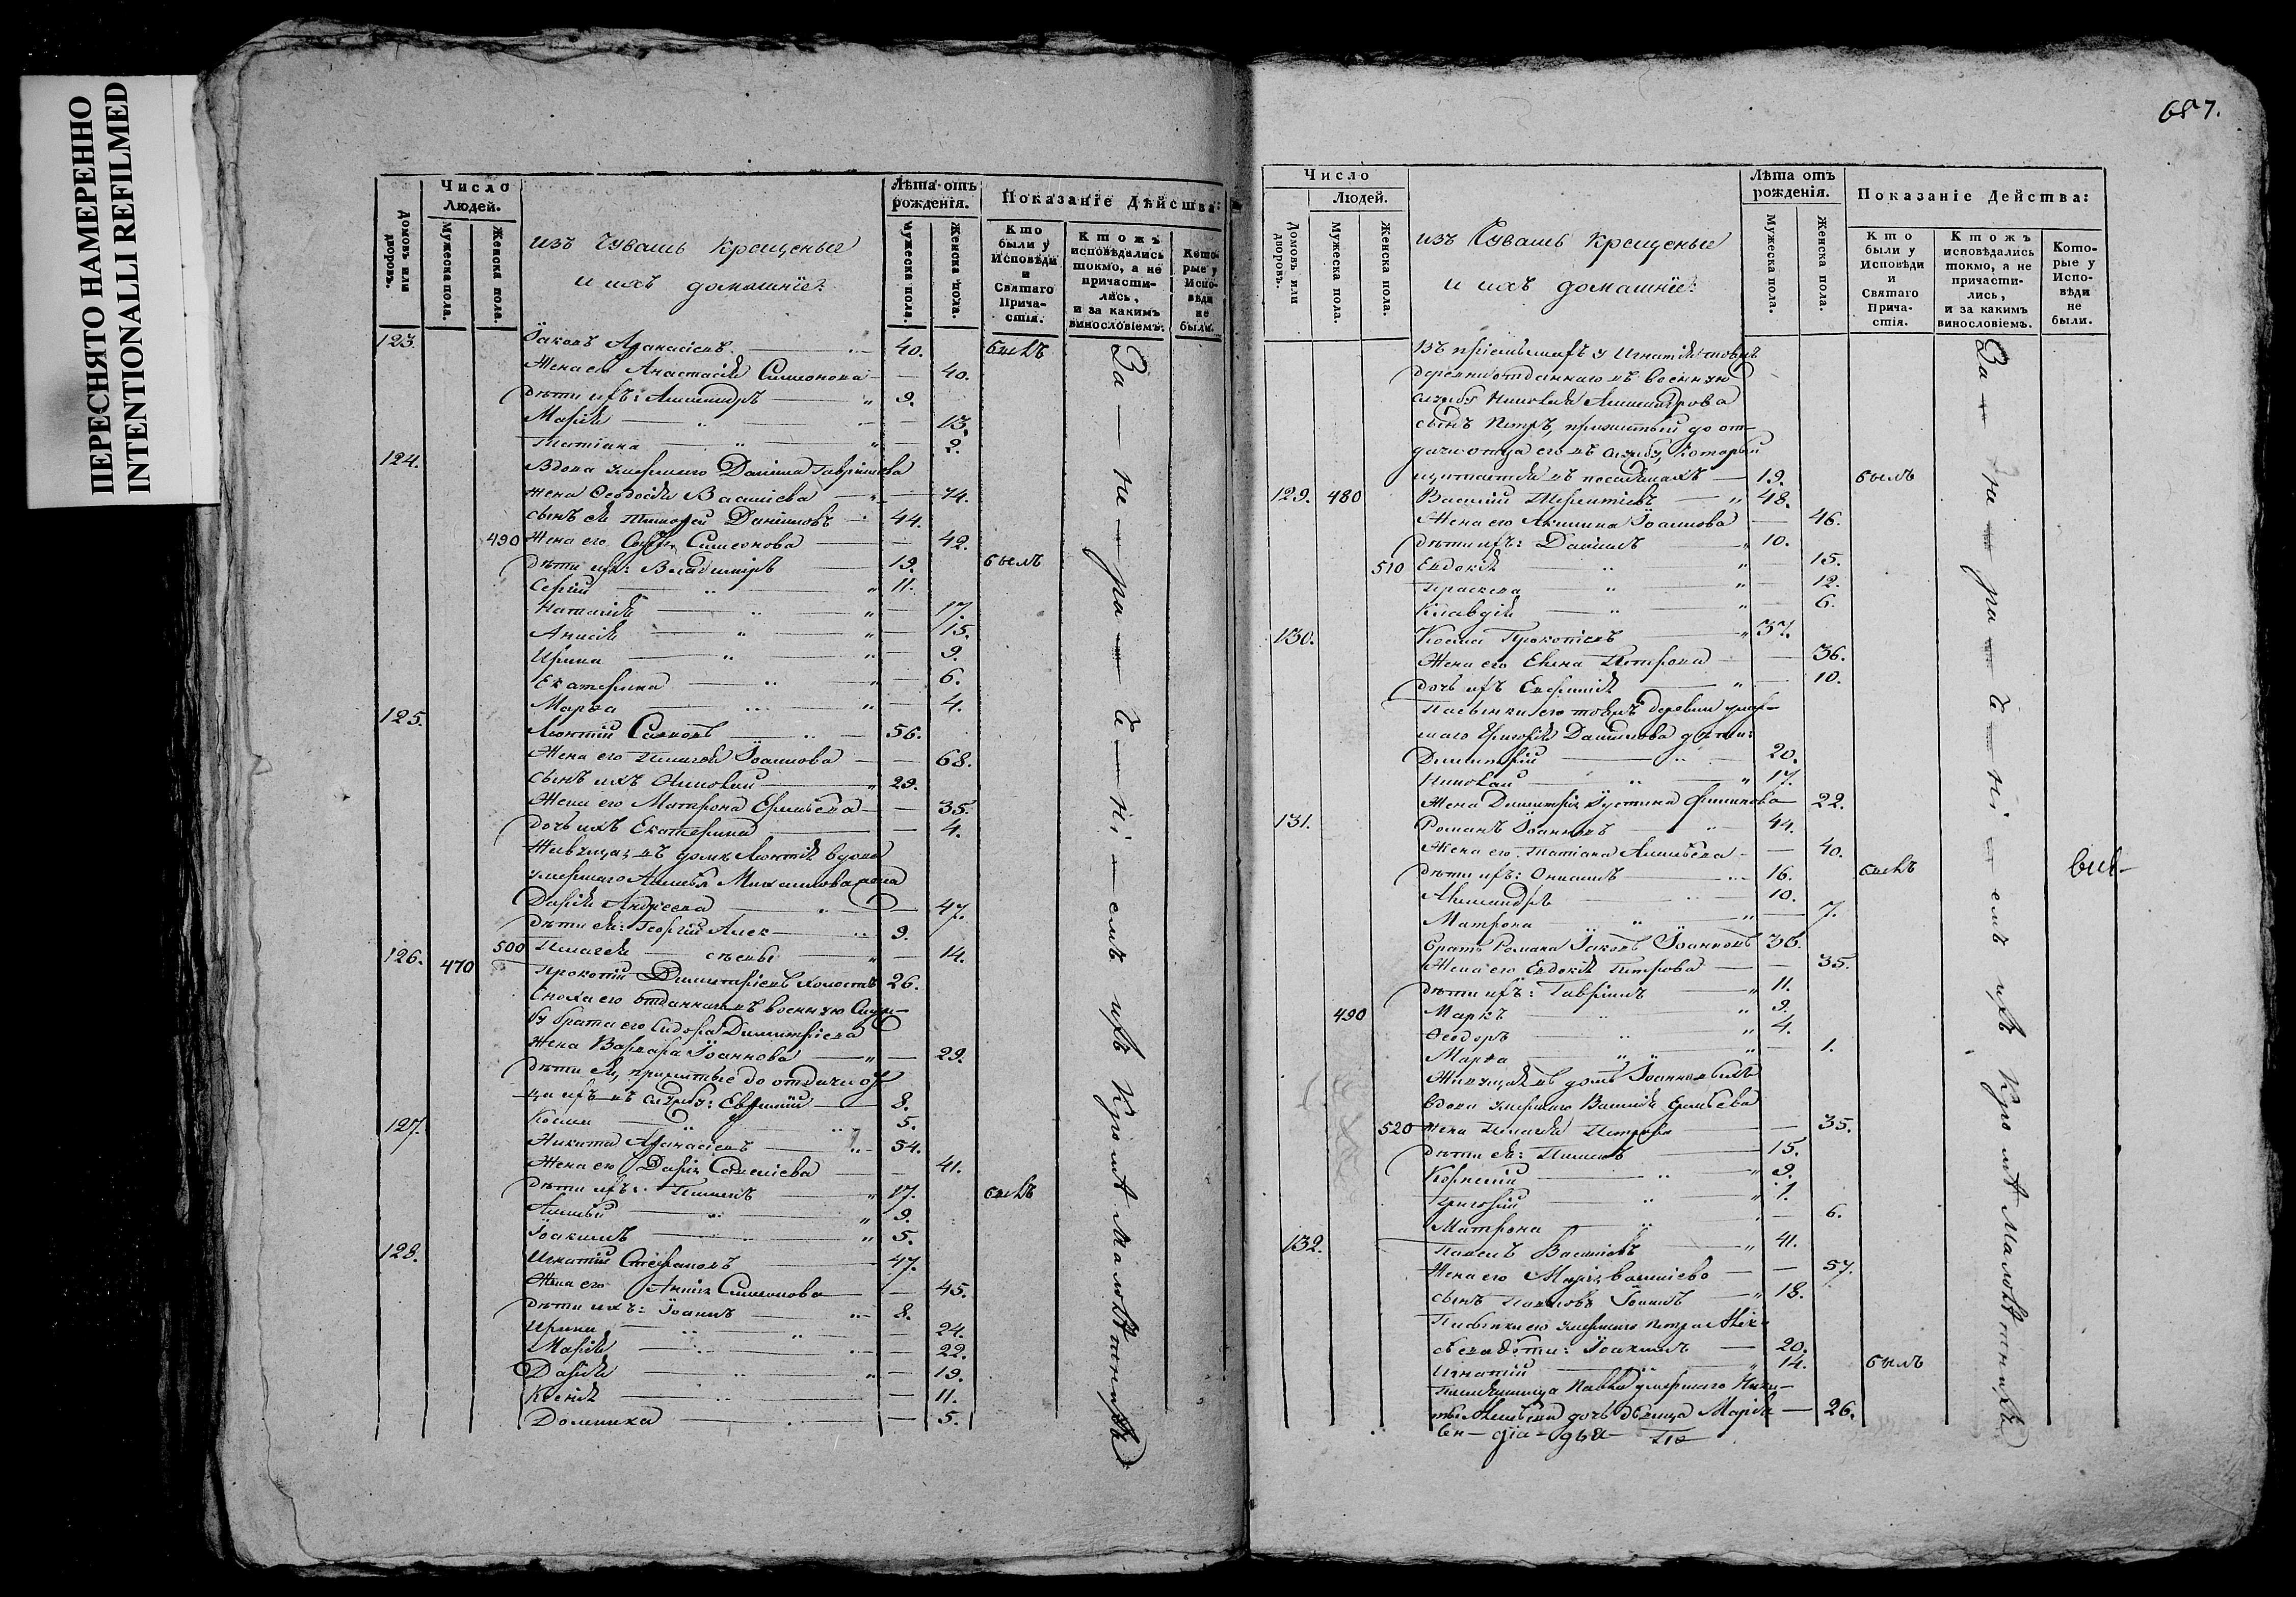 ПЕРЕСНЯТО НАМЕРЕННО
INTENTIONALLI REFILMED
Число
Людей.
Домовъ или дворовъ.
Мужеска пола.
Женска пола.
изъ Чувашъ крещеные
и ихъ домашніе:
Лѣта отъ рожденія.
Мужеска пола.
Женска пола.
Показаніе Дѣйства:
Кто были у Исповѣди и Святаго Причастія.
Ктожъ исповѣдались токмо, а не причастились, и за какимъ винословіемъ.
Которые у Исповѣди не были.
123. Іаковъ Аѳанасіевъ 40. былъ
Жена его Анастасія Симеонова 40.
Дѣти ихъ: Александръ 9.
Марія 13.
Татіана 2.
124. Вдова умершаго Даніила Гавріилова
жена Ѳеодосія Васильева 74.
сынъ ея Тимоѳей Даніиловъ 44.
490 Жена его Симеонова 42.
Дѣти ихъ: Владиміръ 19. былъ
Сергій 11.
Наталія 17.
Анисія 15.
Ирина 9.
Екатерина 6.
Марѳа 4.
125. Леонтій 56.
Жена его Пелагея Іоаннова 68.
сынъ ихъ Николай 29.
Жена его Матрона 35.
дочь ихъ Екатерина 4.
Живущая въ домѣ Леонтія вдова
умершаго Алексѣя Михаилова жена
Дарія Андреева 47.
Дѣти ея: Георгій 9.
500 Пелагея 14.
126. 470 Прокопій Димитріевъ холостъ 26.
Сноха его отданнаго въ военную служ-
бу брата его Сидора Димитріева
жена Варвара Іоаннова 29.
Дѣти ея, прижитые до отдачи от-
ца ихъ въ службу: Евѳимій 8.
Косма 5.
127. Никита Аѳанасіевъ 54.
Жена его Дарія 41.
Дѣти ихъ: 17. былъ
Алексѣй 9.
Іоакимъ 5.
128. Игнатій Стефановъ 47.
Жена его Анна Симеонова 45.
Дѣти ихъ: Іоаннъ 8.
Ирина 24.
Марія 22.
Дарія 19.
Ксенія 11.
Домника 5.
За не ра дѣ ні емъ ихъ Кромѣ Малолѣтнихъ
687.
Число
Людей.
Домовъ или дворовъ.
Мужеска пола.
Женска пола.
изъ Чувашъ крещеные
и ихъ домашніе:
Лѣта отъ рожденія.
Мужеска пола.
Женска пола.
Показаніе Действа:
Кто были у Исповѣди и Святаго Причастія.
Ктожъ исповѣдались токмо, а не причастились, и за какимъ винословіемъ.
Которые у Исповѣди не были.
Въ пріемышахъ у Игнатія тойжъ
деревни отданнаго въ военную
службу Николая Александрова
сынъ Петръ, прижитый до от-
дачи отца его въ службу, который
19. былъ
129. 480 Василій Терентіевъ 48.
Жена его Акилина Іоаннова 46.
дѣти ихъ: Даніилъ 10.
510 Евдокія 15.
Параскева 12.
Клавдія 6.
130. Косма Прокопіевъ 37.
Жена его Елена Петрова 36.
дочь ихъ Евфимія 10.
Пасынки его тойжъ деревни умер-
шаго Григорія Даніилова дѣти:
Димитрій 20.
Николай 17.
Жена Димитрія Іустина Филипова 22.
131. Романъ Іоанновъ 44.
Жена его Татіана Алексѣева 40.
дѣти ихъ: 16. былъ
Александръ 10.
Матрона 7.
братъ Романа Іаковъ Іоанновъ 36.
Жена его Евдокія Петрова 35.
дѣти ихъ: Гавріилъ 11.
490 Маркъ 9.
Ѳеодоръ 4.
Марѳа 1.
Живущая въ домѣ Іоанновыхъ
вдова умершаго Василія
520 жена Пелагея Петрова 35.
дѣти ея: 15.
Корнилій 9.
Григорій 1.
Матрона 6.
132. Павелъ Васильевъ 41.
Жена его Марія Васильева 57.
сынъ Павловъ Іоаннъ 18.
Пасынки его умершаго Петра Алек-
сѣева дѣти: Іоакимъ 20.
Игнатій 14. былъ
Племянница Павла умершаго Ники-
ты Алексѣева дочь дѣвица Марія 26.
За не ра дѣ ні емъ ихъ Кромѣ Малолѣтнихъ